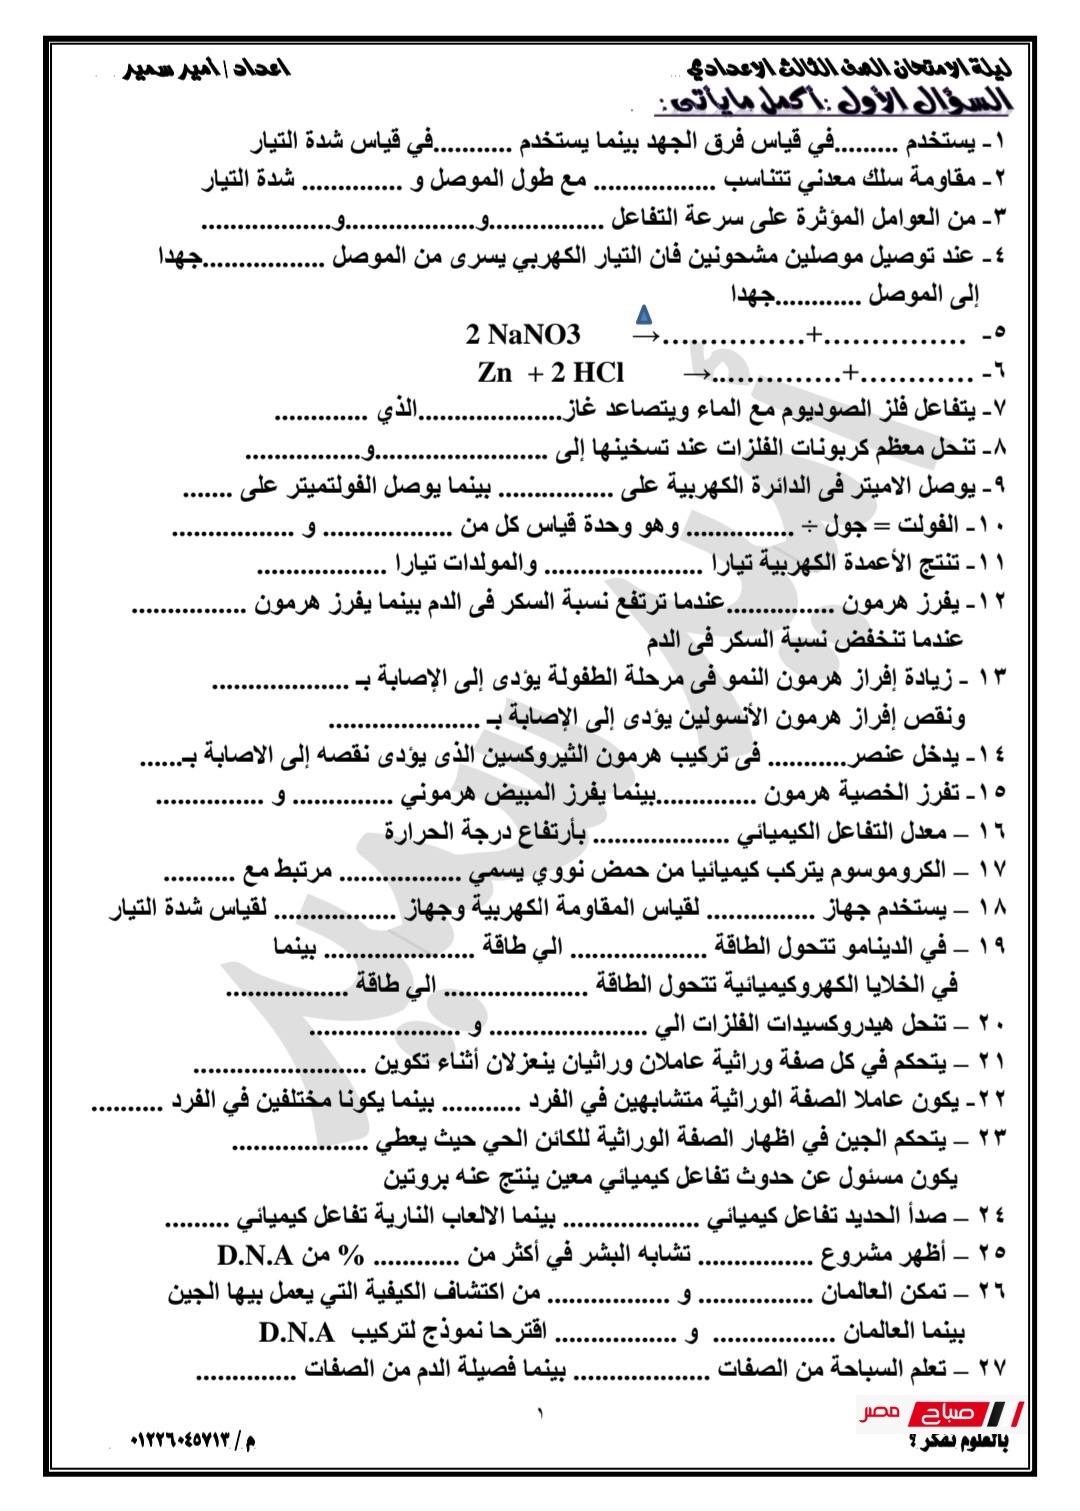 ليلة الامتحان الصف الثالث الاعدادي ... اعداد / أمير سمير
السؤال الأول :أكمل مايأتى :
١- يستخدم .........في قياس فرق الجهد بينما يستخدم ...........في قياس شدة التيار
٢- مقاومة سلك معدني تتناسب ................. مع طول الموصل و .............. شدة التيار
٣- من العوامل المؤثرة على سرعة التفاعل ................و..................و..................
٤- عند توصيل موصلين مشحونين فان التيار الكهربي يسرى من الموصل .................جهدا
إلى الموصل ............جهدا
٥- 2 NaNO3 →...............+...............
٦- Zn + 2 HCl →..............+............
٧- يتفاعل فلز الصوديوم مع الماء ويتصاعد غاز....................الذي .............
٨- تنحل معظم كربونات الفلزات عند تسخينها إلى ........................و................
٩- يوصل الاميتر فى الدائرة الكهربية على ................ بينما يوصل الفولتميتر على .......
١٠- الفولت = جول ÷ ............... وهو وحدة قياس كل من .................. و .................
١١- تنتج الأعمدة الكهربية تيارا ...................... والمولدات تيارا ..................
١٢- يفرز هرمون ...............عندما ترتفع نسبة السكر فى الدم بينما يفرز هرمون ................
عندما تنخفض نسبة السكر فى الدم
١٣ - زيادة إفراز هرمون النمو فى مرحلة الطفولة يؤدى إلى الإصابة بـ ...................
ونقص إفراز هرمون الأنسولين يؤدى إلى الإصابة بـ .....................
١٤- يدخل عنصر........... فى تركيب هرمون الثيروكسين الذى يؤدى نقصه إلى الاصابة بـ......
١٥- تفرز الخصية هرمون ..............بينما يفرز المبيض هرموني .............. و ...............
١٦ – معدل التفاعل الكيميائي ................... بأرتفاع درجة الحرارة
١٧ – الكروموسوم يتركب كيميائيا من حمض نووي يسمي ................. مرتبط مع ..........
١٨ – يستخدم جهاز ............... لقياس المقاومة الكهربية وجهاز ................. لقياس شدة التيار
١٩ – في الدينامو تتحول الطاقة ................... الي طاقة ..................... بينما
في الخلايا الكهروكيميائية تتحول الطاقة .................... الي طاقة .................
٢٠ – تنحل هيدروكسيدات الفلزات الي ...................... و .....................
٢١ – يتحكم في كل صفة وراثية عاملان وراثيان ينعزلان أثناء تكوين ........................
٢٢- يكون عاملا الصفة الوراثية متشابهين في الفرد ........... بينما يكونا مختلفين في الفرد ..........
٢٣ – يتحكم الجين في اظهار الصفة الوراثية للكائن الحي حيث يعطي ...................
يكون مسئول عن حدوث تفاعل كيميائي معين ينتج عنه بروتين
٢٤ – صدأ الحديد تفاعل كيميائي ................... بينما الالعاب النارية تفاعل كيميائي .........
٢٥ – أظهر مشروع ................ تشابه البشر في أكثر من ............ % من D.N.A
٢٦ – تمكن العالمان ................ و ................. من اكتشاف الكيفية التي يعمل بيها الجين
بينما العالمان ................. و ................. اقترحا نموذج لتركيب D.N.A
٢٧ – تعلم السباحة من الصفات ................... بينما فصيلة الدم من الصفات ..............
١
صباح مصر
بالعلوم نفكر ؟ م / ٠١٢٢٦٠٤٥٧١٣
أمير سمير